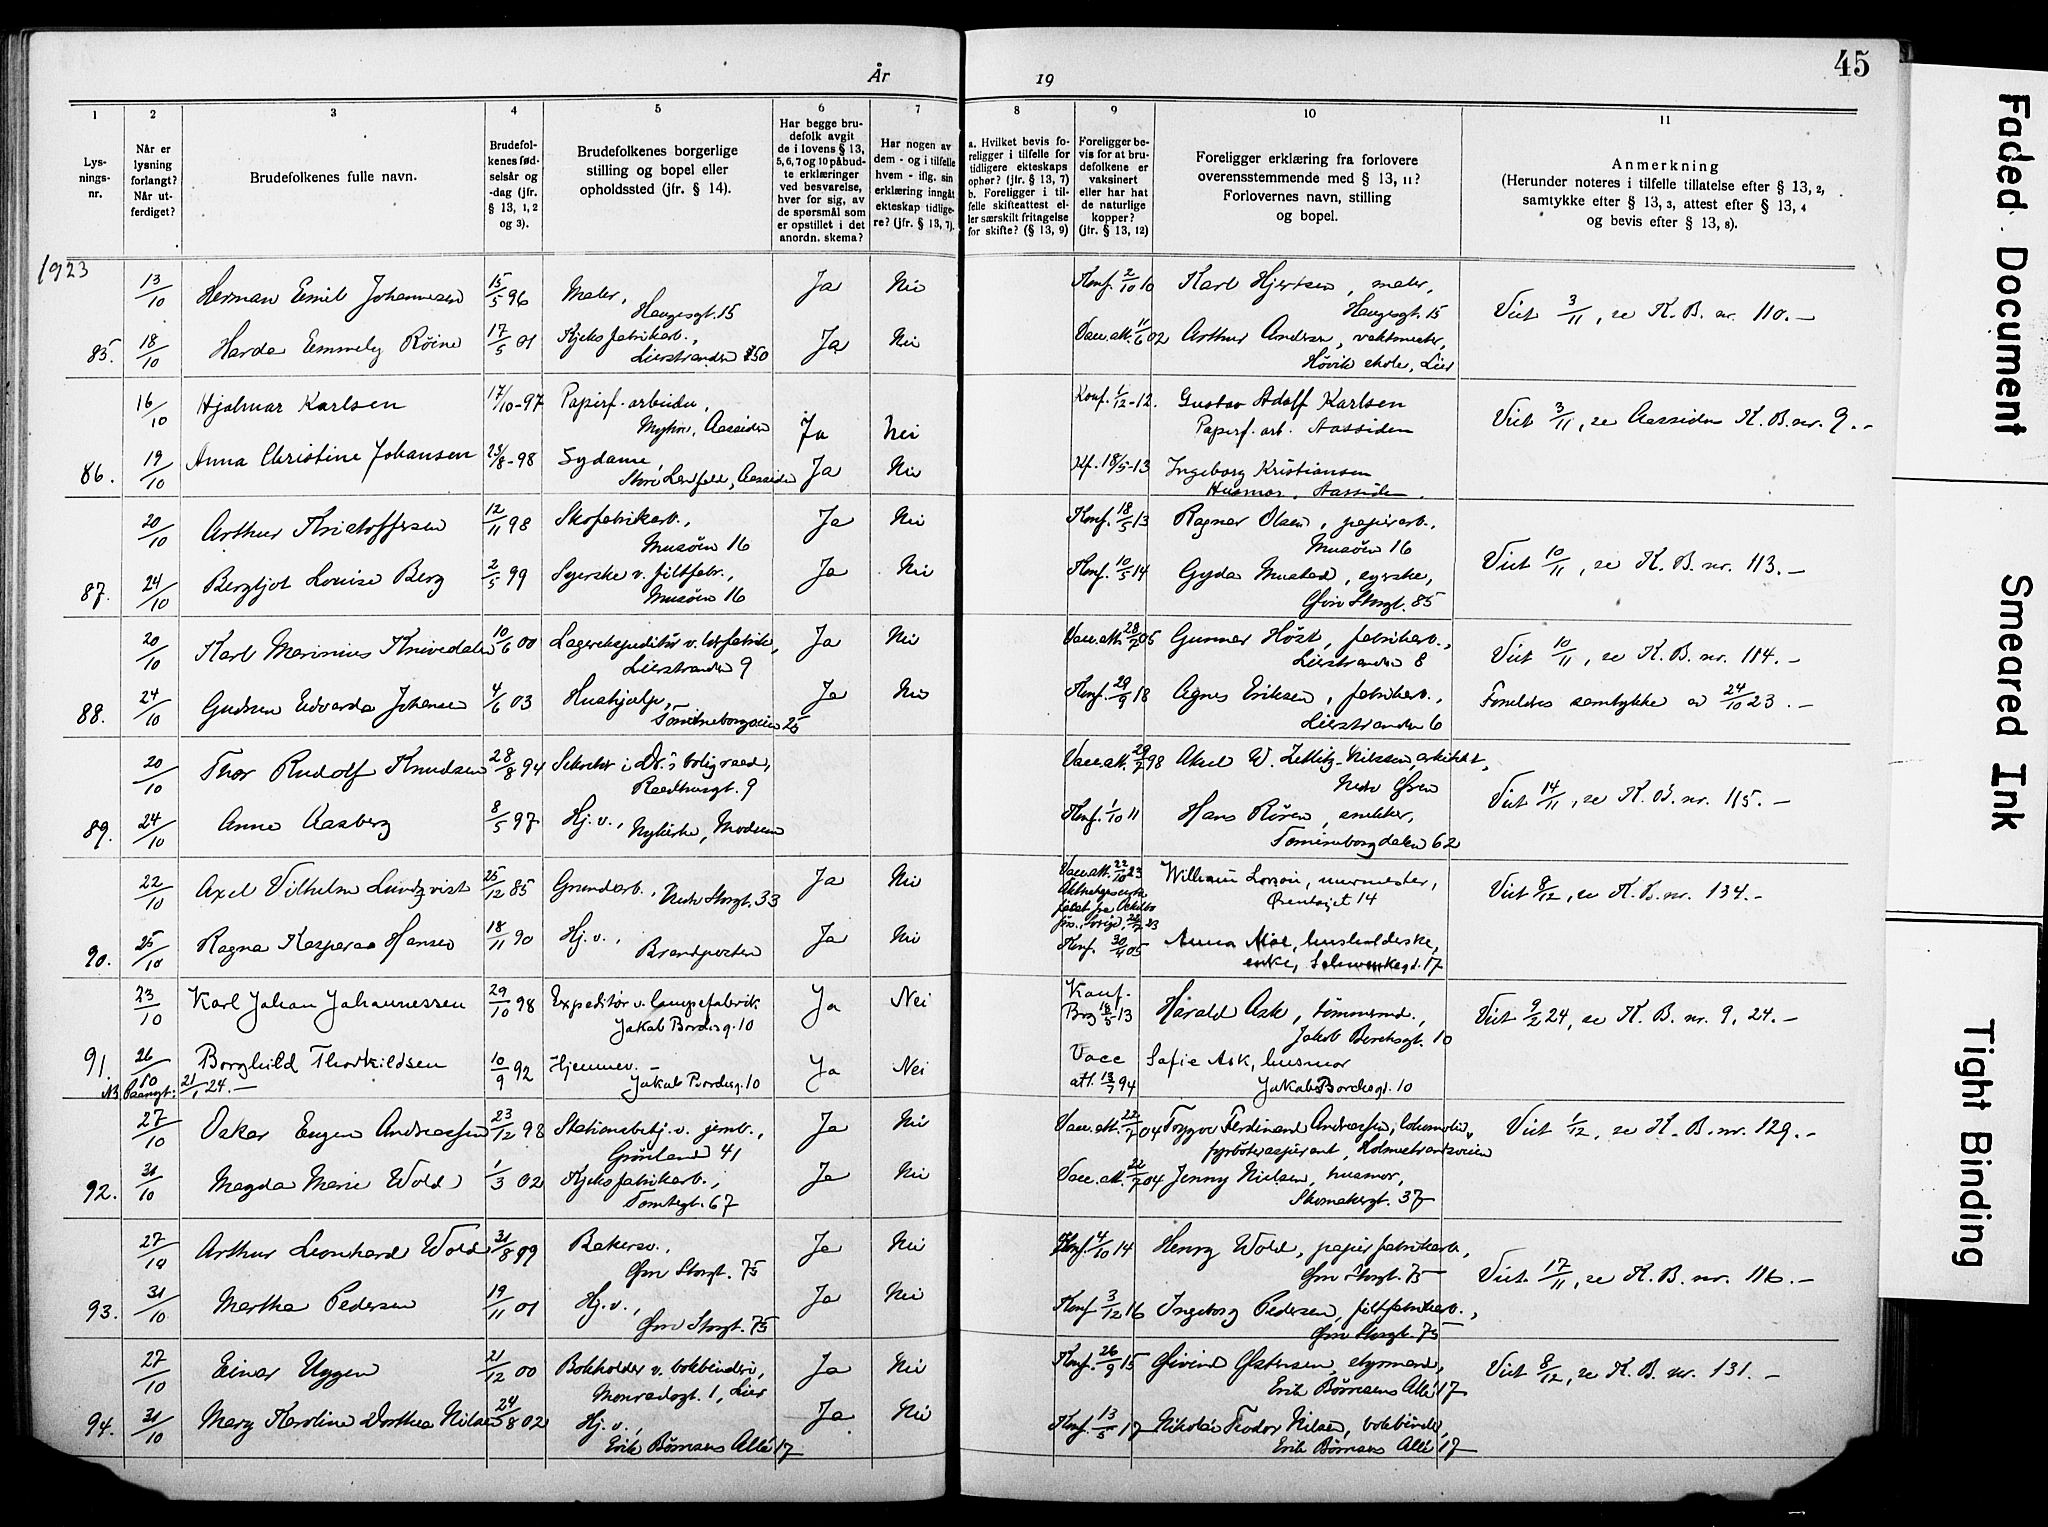 År
19
45
1
2
3
4
5
6
7
8
9
10
11
Lys-
nings-
nr.
Når er
lysning
forlangt?
Når ut-
ferdiget?
Brudefolkenes fulle navn.
Brudefol-
kenes fød-
selsår og
-dag (jfr.
§ 13, 1, 2
og 3).
Brudefolkenes borgerlige
stilling og bopel eller
opholdssted (jfr. § 14).
Har begge bru-
defolk avgit
de i lovens § 13,
5, 6, 7 og 10 påbud-
te erklæringer
ved besvarelse,
hver for sig, av
de spørsmål som
er opstillet i det
anordn. skema?
Har nogen av
dem - og i tilfelle
hvem - iflg. sin
erklæring inngåt
ekteskap tidlige-
re? (jfr. § 13, 7).
a. Hvilket bevis fo-
religger i tilfelle for
tidligere ekteskaps
ophør? (jfr. § 13, 7)
b. Foreligger i til-
felle skifteattest el-
ler særskilt fritagelse
for skifte? (§ 13, 9)
Foreligger be-
vis for at bru-
defolkene er
vaksinert
eller har hat
de naturlige
kopper?
(jfr. § 13, 12)
Foreligger erklæring fra forlovere
overensstemmende med § 13, 11?
Forlovernes navn, stilling
og bopel.
Anmerkning
(Herunder noteres i tilfelle tillatelse efter § 13, 2,
samtykke efter § 13, 3, attest efter § 13, 4
og bevis efter § 13, 8).
1923
13/10 Herman Emil Johannesen 15/5 96 Maler, Ja Nei Konf. 2/10 10 Karl Hjertsen, maler,
Haugesgt. 15 Haugesgt. 15 Viet 3/11, se K. B. nr. 110.-
85. 18/10 Harda Emmely Röine 17/5 01 Kjeksfabrikarb., Ja Nei Vacc. att. 11/6 02 Arthur Andersen, vaktmester,
Lierstranden 150 Høvik skole, Lier
16/10 Hjalmar Karlsen 17/10-97 Papirf.-arbeider, Ja Nei Konf. 1/12-12. Gustav Adolf Karlsen
Myhre, Aassiden Papirf. arb. Aassiden Viet 3/11, se Aassiden K. B. nr. 9.-
86. 19/10 Anna Christine Johansen 23/8-98 Sydame, Ja Nei Kf. 18/5-13 Ingeborg Kristiansen
Store Landfald, Aassiden Husmor, Aassiden.
20/10 Arthur Kristoffersen 12/11 98 Skofabrikarb., Ja Nei Konf. 18/5 13 Ragnar Olsen, papirarb.,
Musöen 16 Musöen 16 Viet 10/11, se K. B. nr. 113.-
87. 24/10 Bergljot Louise Berg 2/5 99 Syerske v. filtfabr., Ja Nei Konf. 10/5 14 Gyda Mustad, syerske,
Musöen 16 Øvre Storgt. 85
20/10 Karl Marinius Knivedalen 10/6 00 Lagerekspeditör v. Ja Nei Vacc. att. 28/7 05 Gunnar Höst, fabrikarb.,
Lierstranden 9 Lierstranden 8 Viet 10/11, se K. B. nr. 114.-
88. 24/10 Gudrun Edvarda Johansen 4/6 03 Hushjelp, Ja Nei Konf. 29/9 18 Agnes Eriksen, fabrikarb., Foreldres samtykke av 24/10 23.-
Tomineborgveien 25 Lierstranden 6
20/10 Thor Rudolf Knudsen 28/8 94 Sekretær i Dr.s boligraad, Vacc. att. 29/7 98 Aksel W. Zetlitz-Nilssen, arkitekt,
Raadhusgt. 9 Nedr Øren Viet 14/11, se K. B. nr. 115.-
89. 24/10 Anna Aasberg 8/5 97 Hj. v., Nykirke, Modum Konf. 1/10 11 Hans Rören, snekker,
Tomineborgdalen 62
22/10 Axel Vilhelm Lundqvist 25/12 85 Grundarb., Nedr Storgt. 33 Ja Nei Vacc. att. 22/10 23 William, murmester,
Örentorget 14 Viet 8/12, se K. B. nr. 134.-
90. 25/10 Ragna Kasperaa Hansen 18/11 90 Hj. v., Ja Nei Konf. 30/4 05 Anna Moe, husholderske,
Brandposten enke, Schwenkegt. 17
23/10 Karl Johan Johannessen 29/10 98 Expeditör v. lampefabrik Ja Nei Konf. Brg 18/5 13 Harald Ask, tömmermd.,
Jakob Borchsg. 10 Jakob Borchsgt. 10 Viet 9/2 24, se K. B. nr. 9, 24.-
91. 26/10 Borghild Thorkildsen 10/9 92 Hjemmev.- Ja Nei Vacc att. 13/7 94 Sofie Ask, husmor
Jakob Borchsg. 10 Jakob Borchsgt. 10
NB Paategt: 21/1 24.-
27/10 Oskar Eugen Andreassen 23/12 98 Stationsbetj. v. jernb., Ja Nei Vacc. att. 22/7 04 Trygve Ferdinand Andreassen, lokomotiv-
Grönland 41 fyrböteraspirant, Holmestrandsveien Viet 1/12, se K. B. nr. 129.-
92. 31/10 Magda Marie Wold 1/3 02 Kjeksfabrikarb., Ja Nei Vacc. att. 22/7 04 Jenny Nielsen, husmor,
Tomtegt. 67 Skomakergt. 37
27/10 Arthur Leonhard Wold 31/8 99 Bakersv., Ja Nei Konf. 4/10 14 Henry Wold, papirfabrikarb.,
Øvre Storgt. 75 Øvre Storgt. 75 Viet 17/11, se K. B. nr. 116.-
93. 31/10 Martha Pedersen 19/11 01 Hj. v., Ja Nei Konf. 3/12 16 Ingeborg Pedersen, filtfabrikarb.,
Øvre Storgt. 75 Øvre Storgt. 75
27/10 Einar Uggen 21/12 00 Bokholder v. bokbinderi, Ja Nei Konf. 26/9 15 Øivind Østensen, styrmand,
Monradsgt. 1, Lier Erik Börresens Allé 17 Viet 8/12, se K. B. nr. 131.-
94. 31/10 Mary Karoline Dorthea Nilsen 24/8 02 Hj. v., Ja Nei Konf. 13/5 17 Nikolai Teodor Nilsen, bokbinder,
Erik Börresens Allé 17 Erik Börresens Allé 17
Faded Document
Smeared Ink
Tight Binding